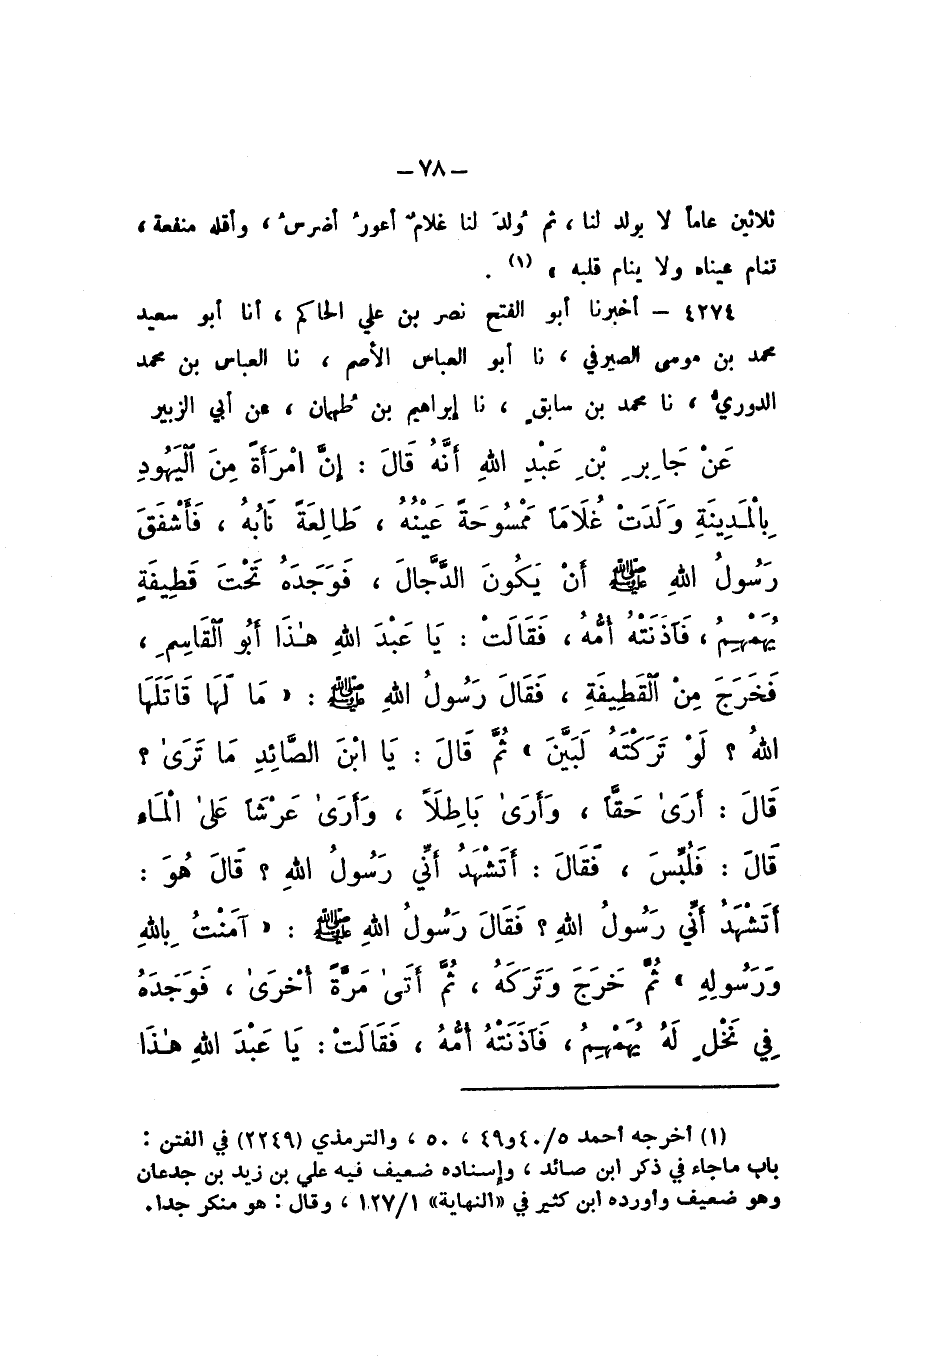 — ٧٨ —
ثلاثين عاماً لا يولد لنا ، ثم وُلدَ لنا غلامٌ أعورُ أضرسُ ، وأقله منفعة ،
تنام عيناه ولا ينام قلبه » (١) .
٤٢٧٤ — أخبرنا أبو الفتح نصر بن علي الحاكم ، أنا أبو سعيد
محمد بن موسى الصيرفي ، نا أبو العباس الأصم ، نا العباس بن محمد
الدوريُّ ، نا محمد بن سابقٍ ، نا إبراهيم بن طُهمان ، عن أبي الزبير
عَنْ جَابِرِ بْنِ عَبْدِ اللهِ أَنَّهُ قَالَ : إِنَّ امْرَأَةً مِنَ ٱلْيَهُودِ
بِالْمَدِينَةِ وَلَدَتْ غُلَامَاً مَمْسُوحَةً عَيْنُهُ ، طَالِعَةً نَابُهُ ، فَأَشْفَقَ
رَسُولُ اللهِ ﷺ أَنْ يَكُونَ الدَّجَّالَ ، فَوَجَدَهُ تَحْتَ قَطِيفَةٍ
يُهَمْهِمُ ، فَآذَنَتْهُ أُمُّهُ ، فَقَالَتْ : يَا عَبْدَ اللهِ هٰذَا أَبُو ٱلْقَاسِمِ ،
فَخَرَجَ مِنْ ٱلْقَطِيفَةِ ، فَقَالَ رَسُولُ اللهِ ﷺ : « مَا لَهَا قَاتَلَهَا
اللهُ ؟ لَوْ تَرَكَتْهُ لَبَيَّنَ » ثُمَّ قَالَ : يَا ابْنَ الصَّائِدِ مَا تَرَىٰ ؟
قَالَ : أَرَىٰ حَقَّاً ، وَأَرَىٰ بَاطِلَاً ، وَأَرَىٰ عَرْشَاً عَلىٰ الْمَاءِ
قَالَ : فَلُبِّسَ ، فَقَالَ : أَتَشْهَدُ أَنِّي رَسُولُ اللهِ ؟ قَالَ هُوَ :
أَتَشْهَدُ أَنِّي رَسُولُ اللهِ ؟ فَقَالَ رَسُولُ اللهِ ﷺ : « آمَنْتُ بِاللهِ
وَرَسُولِهِ » ثُمَّ خَرَجَ وَتَرَكَهُ ، ثُمَّ أَتَىٰ مَرَّةً أُخْرَىٰ ، فَوَجَدَهُ
فِي نَخْلٍ لَهُ يُهَمْهِمُ ، فَآذَنَتْهُ أُمُّهُ ، فَقَالَتْ : يَا عَبْدَ اللهِ هٰذَا
(١) أخرجه أحمد ٤٠/٥ و٤٩ ، ٥٠ ، والترمذي (٢٢٤٩) في الفتن :
باب ماجاء في ذكر ابن صائد ، وإسناده ضعيف فيه علي بن زيد بن جدعان
وهو ضعيف وأورده ابن كثير في «النهاية» ١٢٧/١ ، وقال : هو منكر جدا .